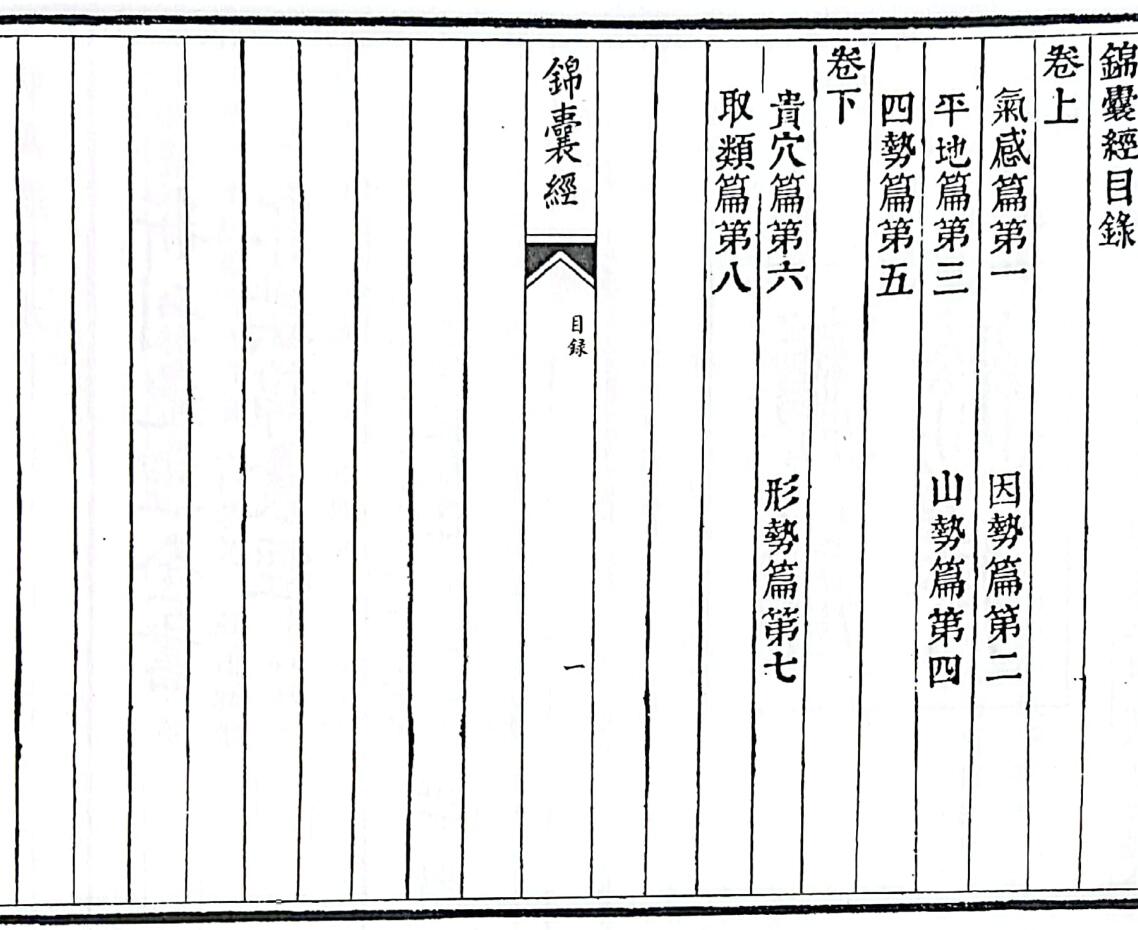 錦囊經目錄
卷上
氣感篇第一 因勢篇第二
平地篇第三 山勢篇第四
四勢篇第五
卷下
貴穴篇第六 形勢篇第七
取類篇第八
錦囊經 目録 一